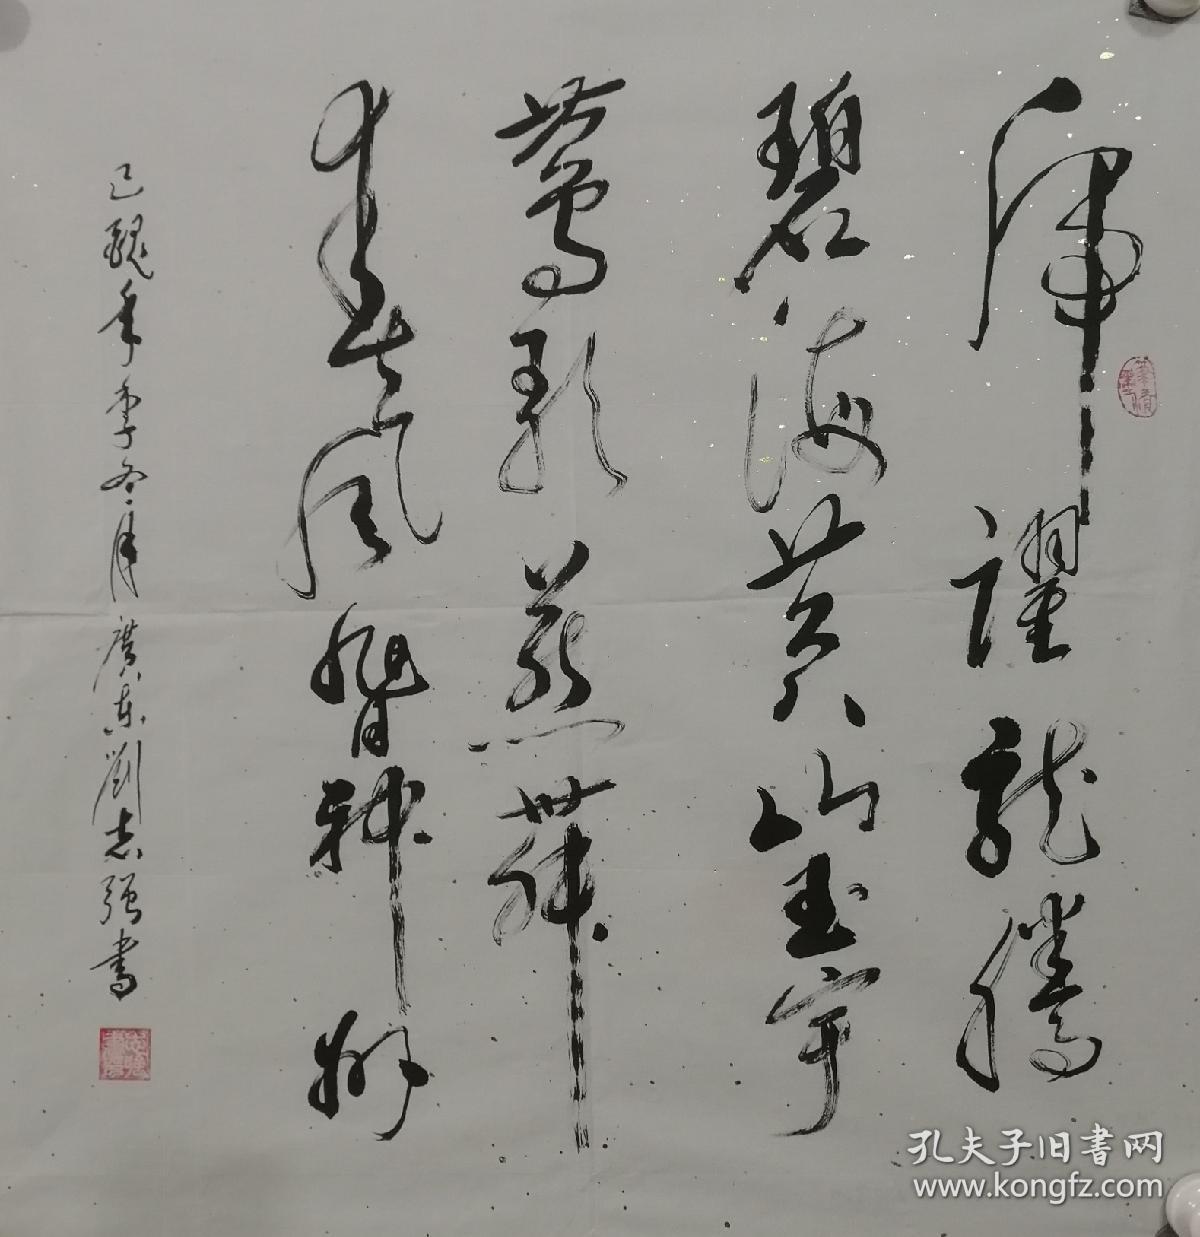 虎躍龍騰
碧海黄山玉宇
鶯歌燕舞
春風神州
己醜年季冬月廣東劉志强書
孔夫子旧書网
www.kongfz.com